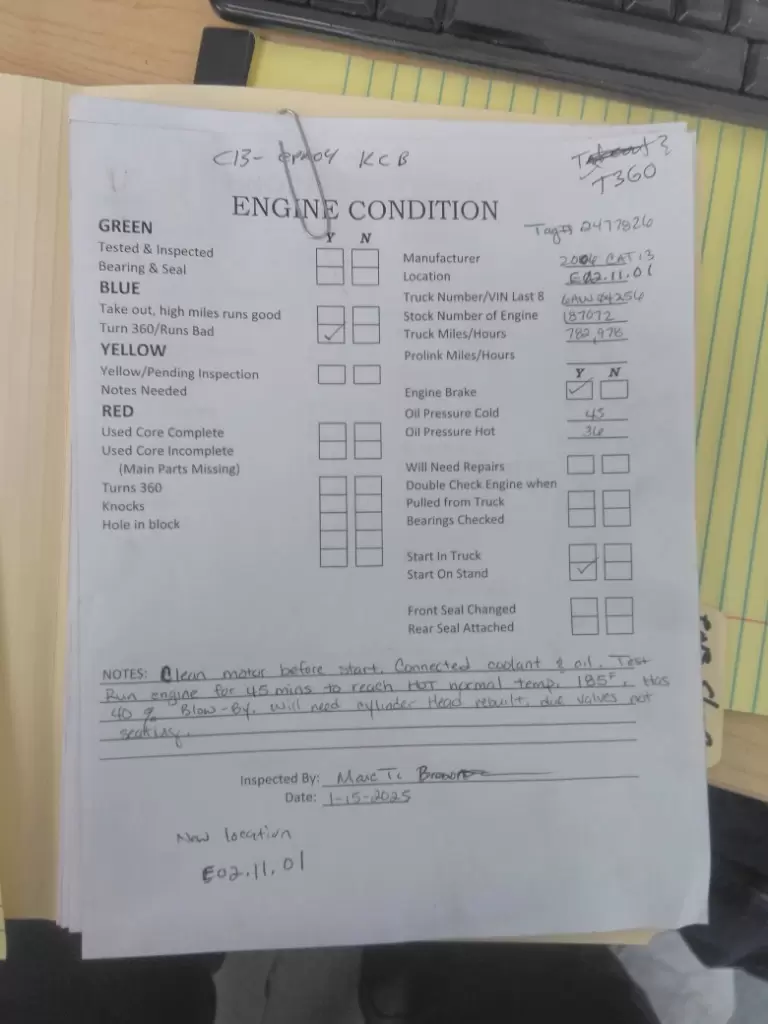 C13- EPA04 KCB
Takeout ?
T360
ENGINE CONDITION
Tag# 2477826
GREEN
Y N
Tested & Inspected
Bearing & Seal
BLUE
Take out, high miles runs good
Turn 360/Runs Bad
YELLOW
Yellow/Pending Inspection
Notes Needed
RED
Used Core Complete
Used Core Incomplete
(Main Parts Missing)
Turns 360
Knocks
Hole in block
Manufacturer 2006 CAT 13
Location E02.11.01
Truck Number/VIN Last 8 6AW84256
Stock Number of Engine 187072
Truck Miles/Hours 782,978
Prolink Miles/Hours
Y N
Engine Brake
Oil Pressure Cold 45
Oil Pressure Hot 36
Will Need Repairs
Double Check Engine when
Pulled from Truck
Bearings Checked
Start In Truck
Start On Stand
Front Seal Changed
Rear Seal Attached
NOTES: Clean motor before start. Connected coolant & oil. Test
Run engine for 45 mins to reach HOT normal temp. 185F. Has
40 % Blow-By. Will need cylinder Head rebuilt, due valves not
seating.
Inspected By: Marc T.
Date: 1-15-2025
New location
E02.11.01